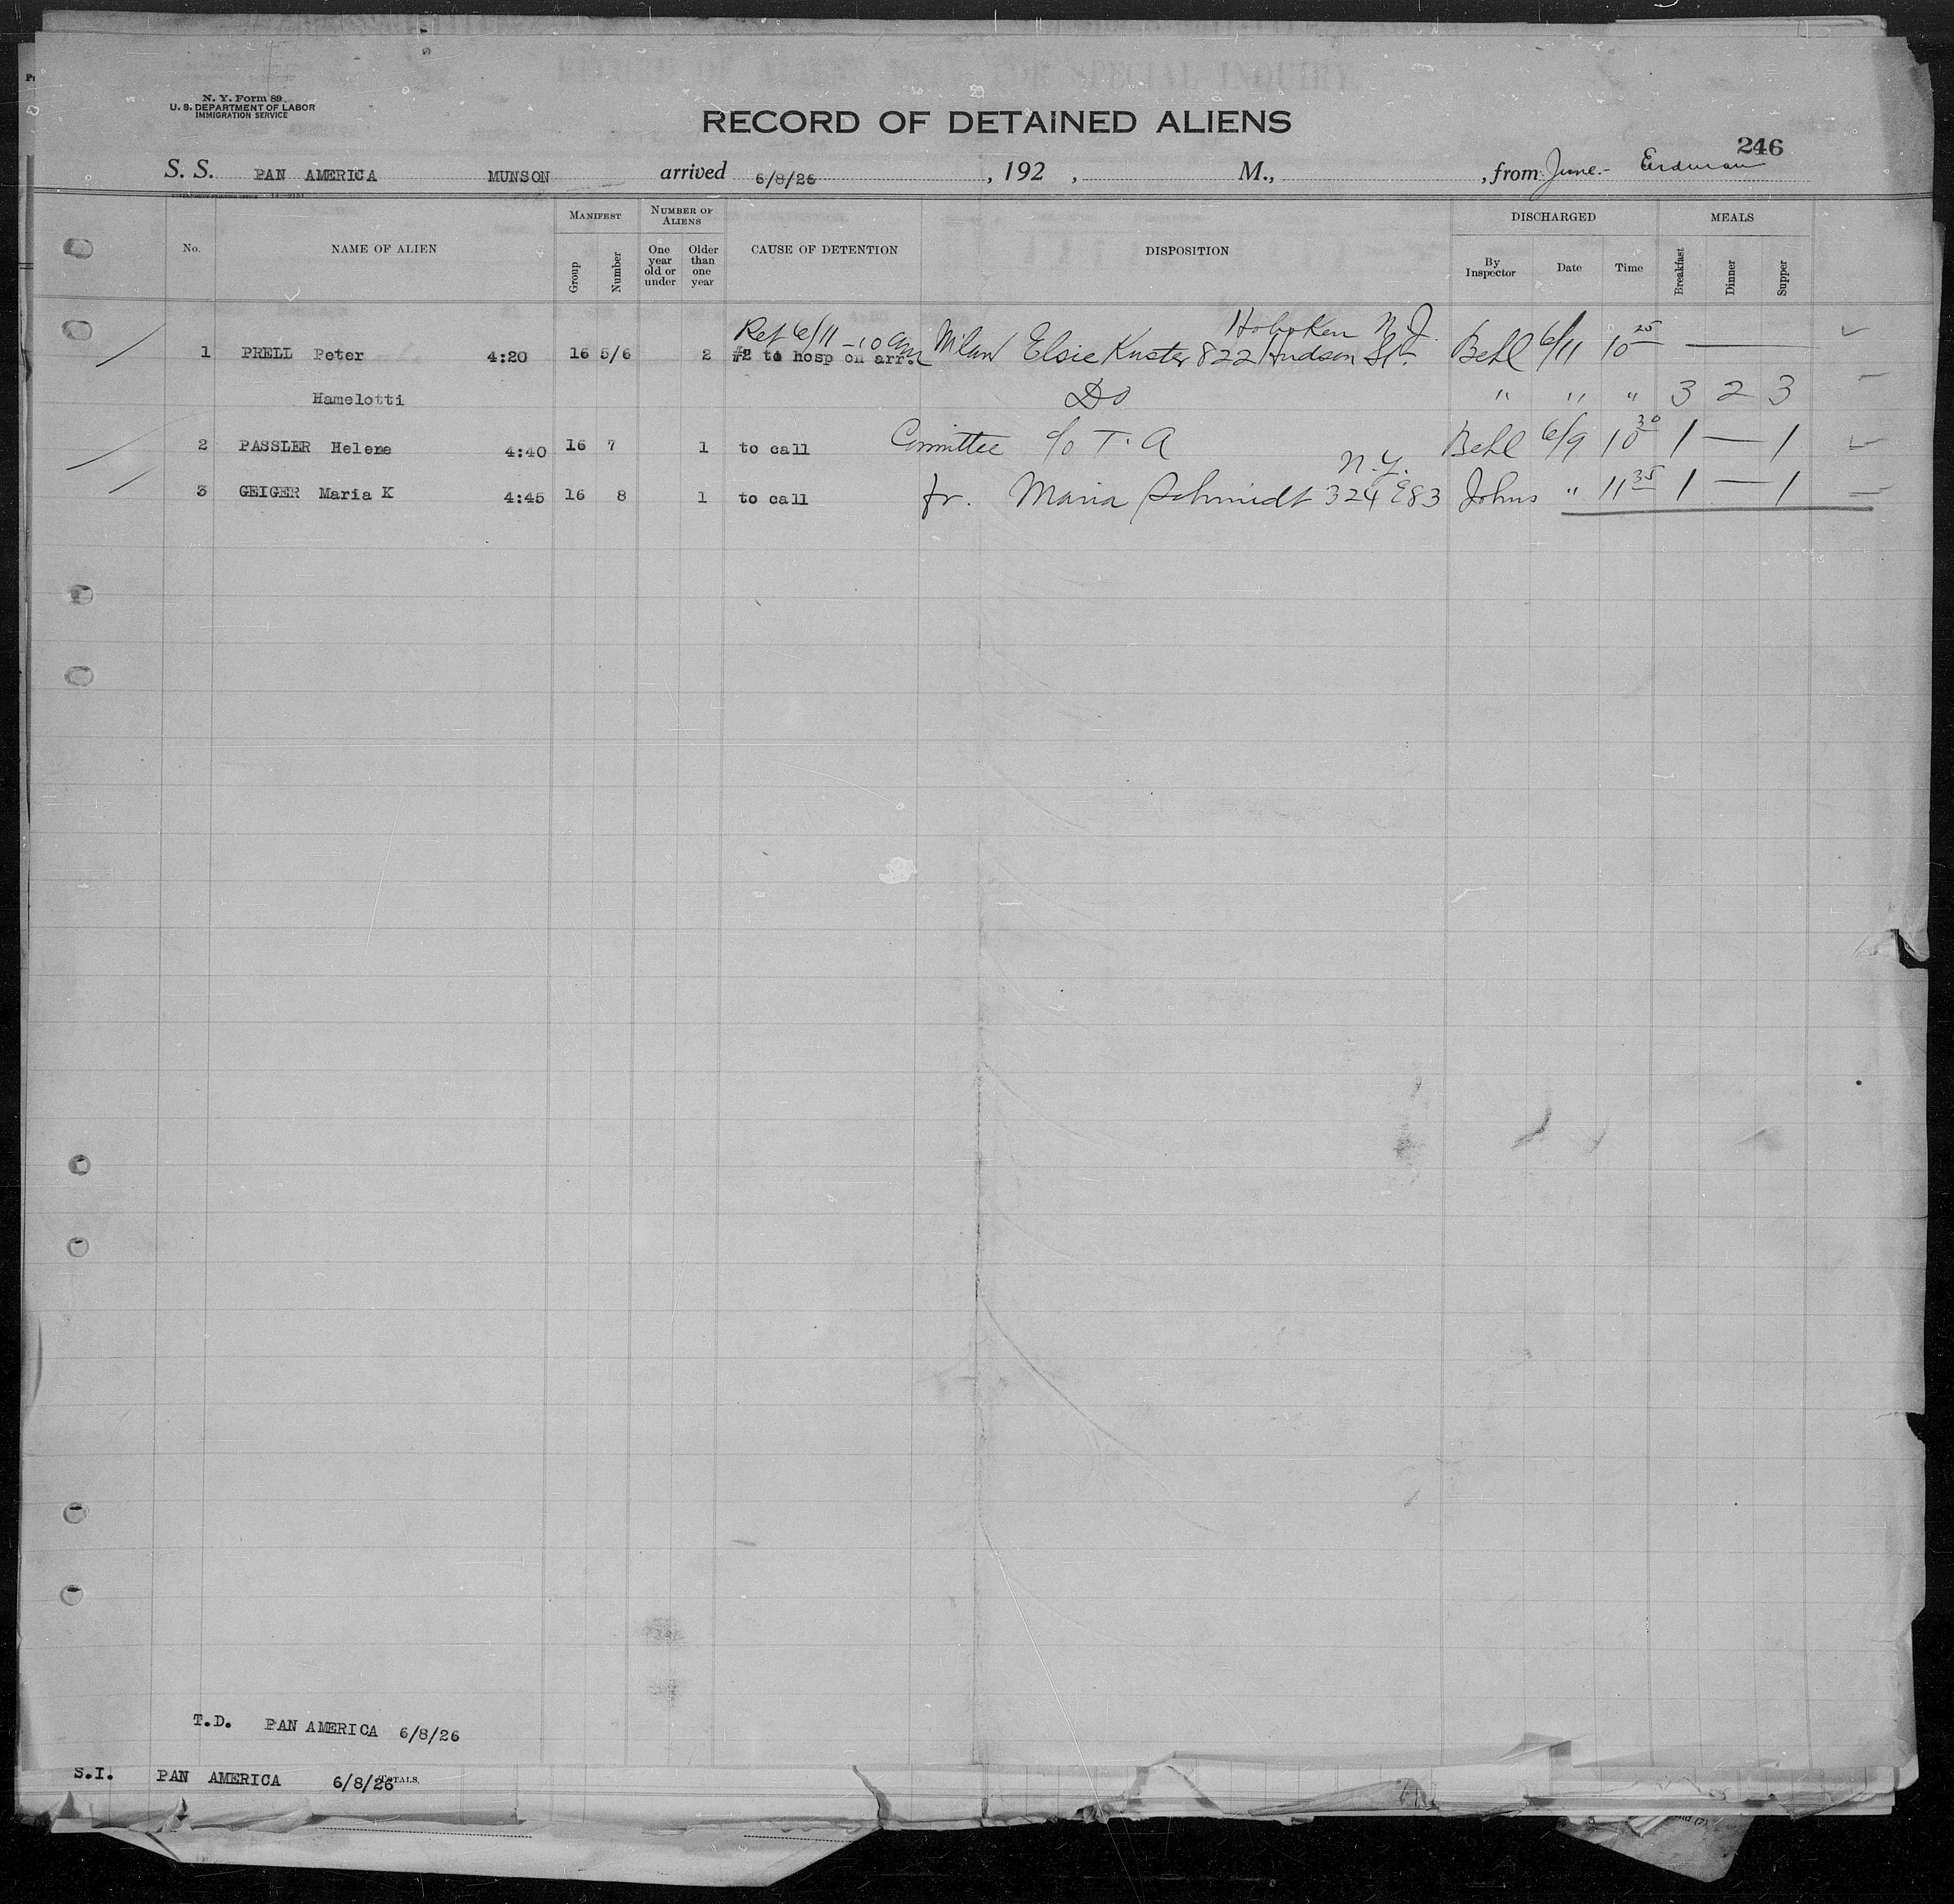 N. Y. Form 89
U. S. DEPARTMENT OF LABOR
IMMIGRATION SERVICE
RECORD OF DETAINED ALIENS
246
S. S. PAN AMERICA MUNSON arrived 6/8/26 , 192 , M., , from June - Erdman
No. NAME OF ALIEN MANIFEST Group Number NUMBER OF ALIENS One year old or under Older than one year CAUSE OF DETENTION DISPOSITION DISCHARGED By Inspector Date Time MEALS Breakfast Dinner Supper
Ret 6/11 - 10 am Hoboken N.J.
1 PRELL Peter 4:20 16 5/6 2 #2 to hosp on arr. Elsie Kuster 822 Hudson St. Behl 6/11 10 25 —
Hamelotti Do " " " 3 2 3
2 PASSLER Helene 4:40 16 7 1 to call Committee c/o T. A Behl 6/9 10 30 1 — 1
N.Y.
3 GEIGER Maria K 4:45 16 8 1 to call fr. Maria Schmidt 324 E 83 Johns " 11 35 1 — 1
T.D. PAN AMERICA 6/8/26
S.I. PAN AMERICA 6/8/26 TOTALS,